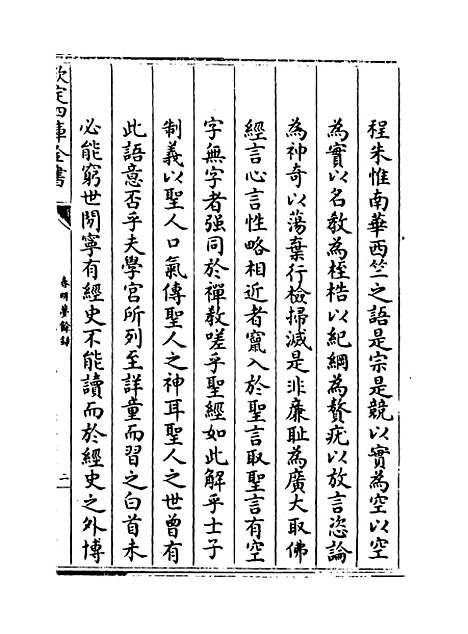 程朱惟南華西竺之語是宗是競以實為空以空
為實以名教為桎梏以紀綱為贅疣以放言恣論
為神奇以蕩棄行檢掃滅是非廉耻為廣大取佛
經言心言性略相近者竄入於聖言取聖言有空
字無字者强同於禪教嗟乎聖經如此解乎士子
制義以聖人口氣傳聖人之神耳聖人之世曾有
此語意否乎夫學宮所列至詳童而習之白首未
必能窮世閒寧有經史不能讀而於經史之外博
欽定四庫全書
春明夢餘録
二